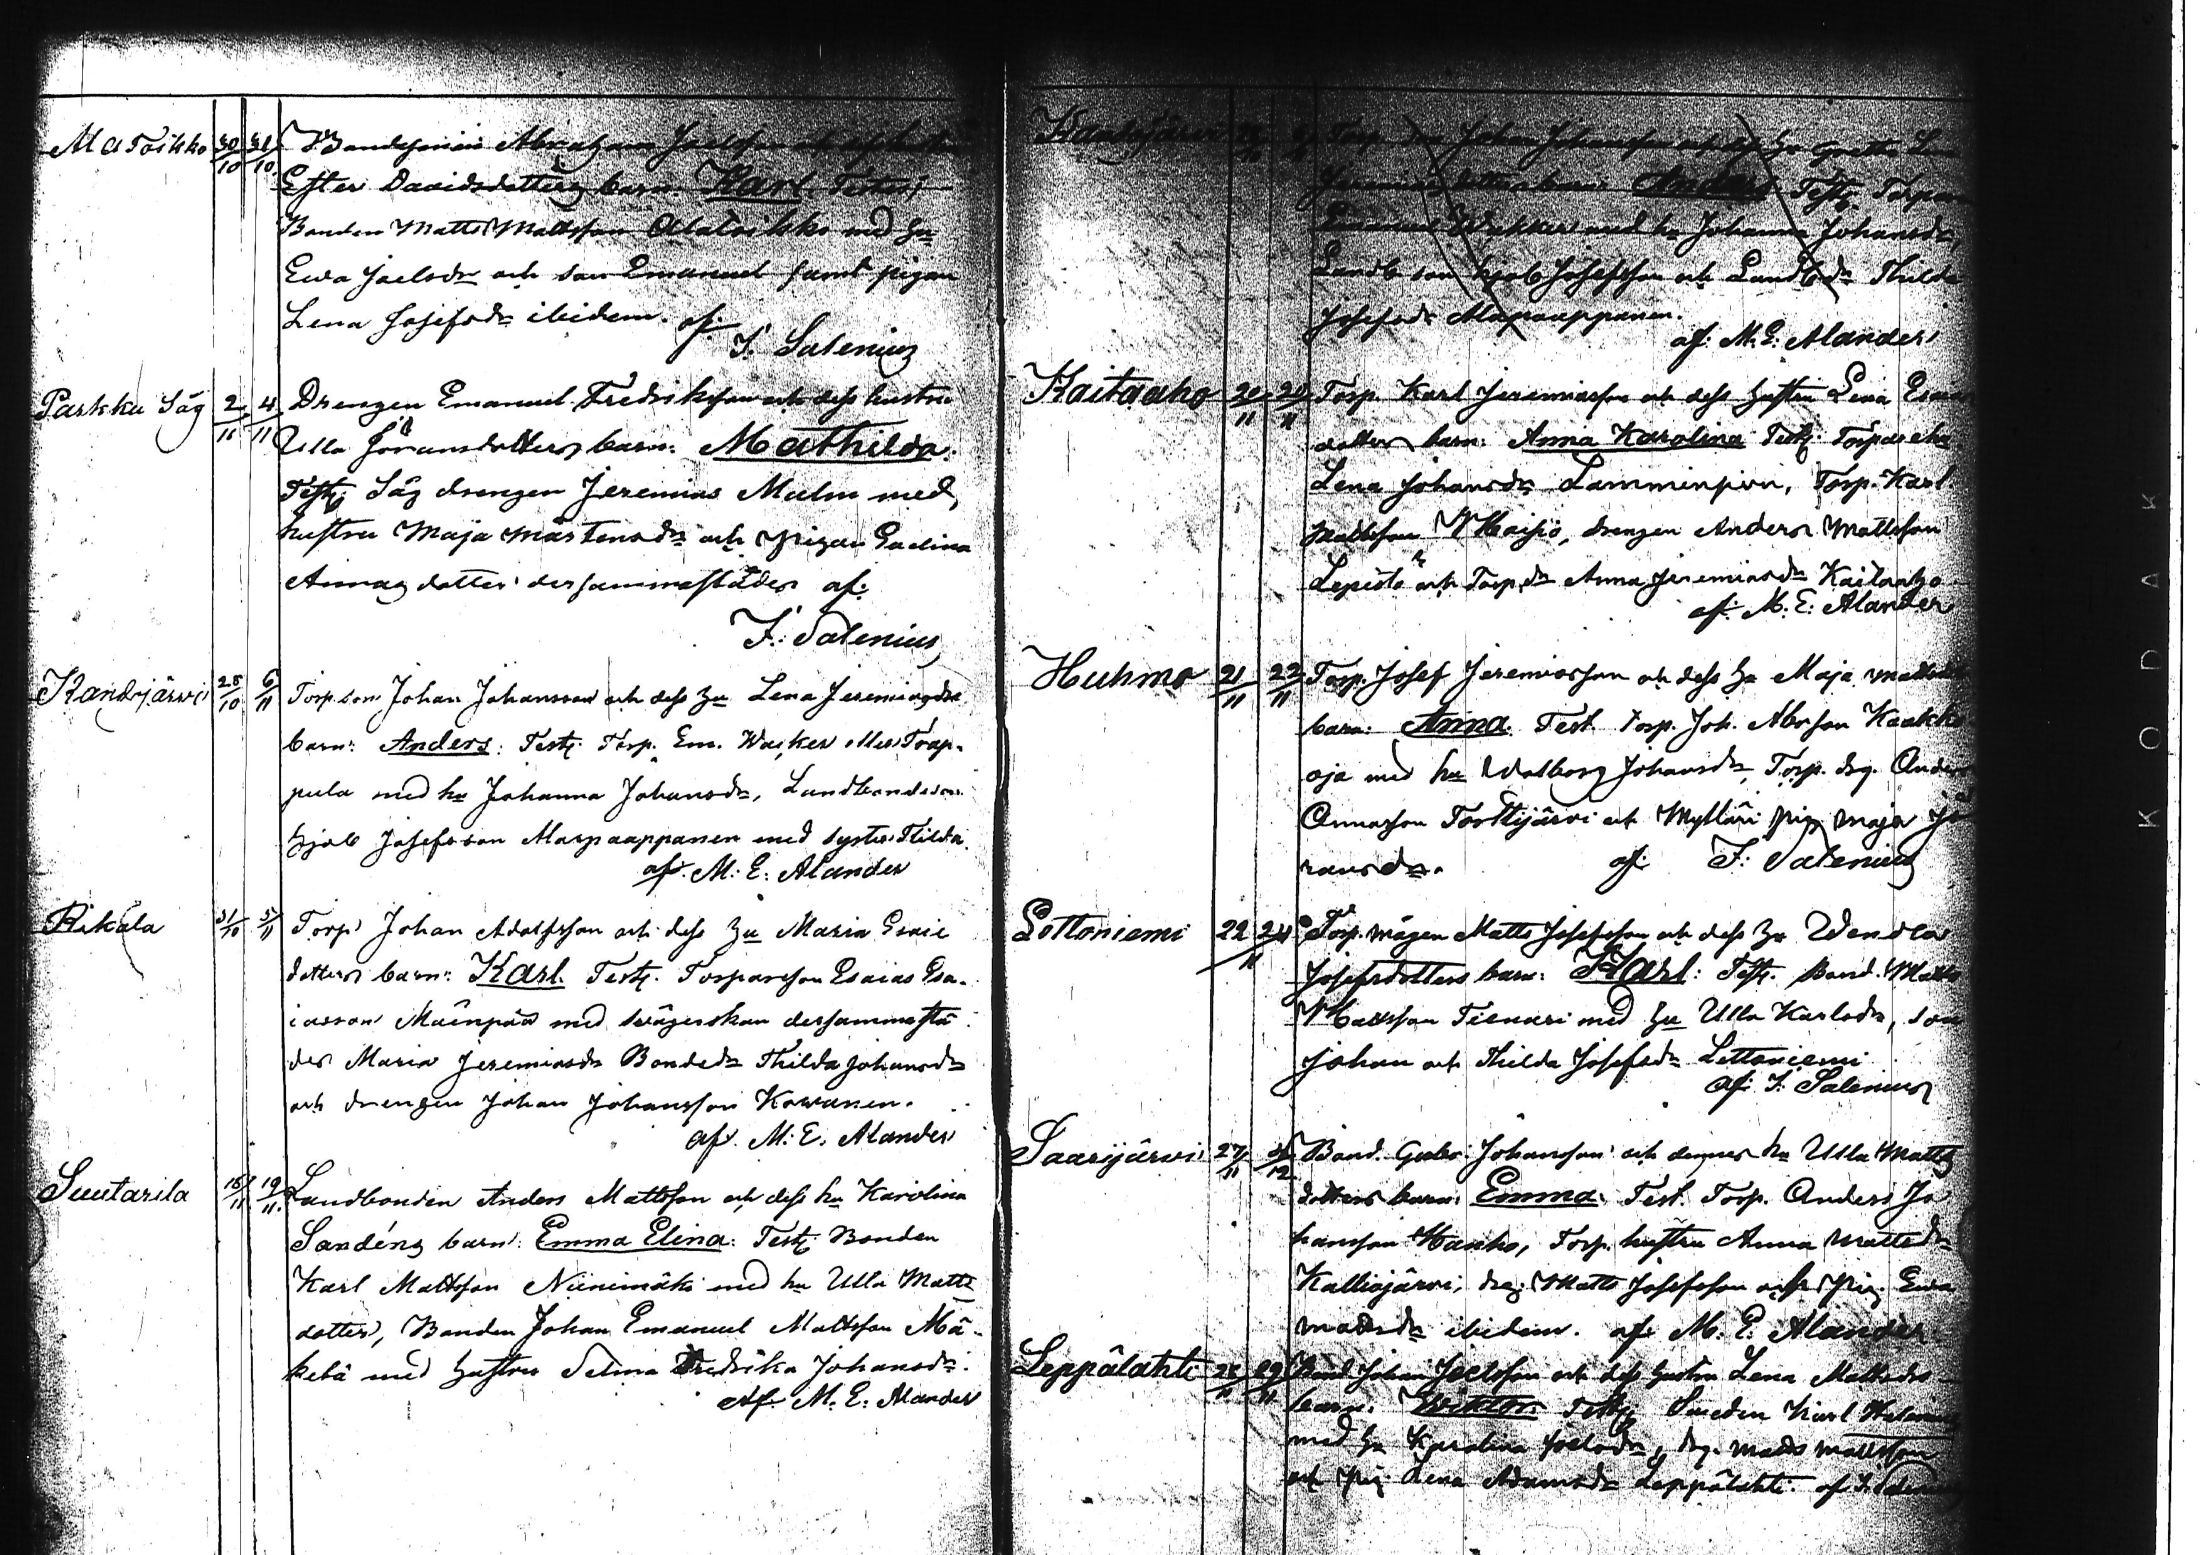 Ala Toikko 30/10 31/10 Bondesonen Abraham Joelsson och
Ester Davidsdotters barn: Karl. Test:
Bonden Matts Mattsson Alatoikko med hu
Ewa Joelsdr och son Emanuel samt pigan
Lena Josefsdr ibidem. af:
F. Salenius
Parkku Såg 2/11 4/11 Drengen Emanuel Fredriksson och dess hustru
Ulla Göransdotters barn: Mathilda.
Test: Såg drengen Jeremias Malm med
hustru Maja Mårtensdr och pigan Evelina
Annas dotter dersammastädes af:
F. Salenius
Kandjärwi 28/10 6/11 Torp.son Johan Johansson och dess hu Lena Jeremiasdrs
barn: Anders: Test: Torp. Em. Wacker eller Torp-
pula med hu Johanna Johansdr, Landbondeson
Hjalt Josefsson Alapaappanen med syster Thilda.
af. M. E. Alander
Rikala 31/10 5/11 Torp. Johan Adolfsson och dess hu Maria Esaie
dotters barn: Karl. Test: Torpareson Esaias Esa-
iasson Mäenpää med svägerskan dersammastä-
des Maria Jeremiasdr Bondedr Thilda Johansdr
och drengen Johan Johansson Kowanen.
af. M. E. Alander
Suutarila 18/11 19/11 Landbonden Anders Mattsson och dess hu Karolina
Sandéns barn: Emma Elina: Test: Bonden
Karl Mattsson Niinimäki med hu Ulla Matts
dotter, Bonden Johan Emanuel Mattsson Mä-
kelä med hustru Selma Fredrika Johansdr.
Af. M. E. Alander
Kandjärwi Torp Johan Johansson och hu Greta Lena
Jeremias dotters barn: Anders Test: Torparen
Emanuel Wakker med hu Johanna Johansdr,
Landb son Josefsson och Landb.dr Thilda
Josefsdr Alapaappanen.
af: M. E. Alander
Kaitaaho 20/11 20/11 Torp. Karl Jeremiasson och dess hustru Lena Esaias
dotters barn: Anna Karolina Test: Torpare hu
Lena Johansdr Lamminsivu, Torp. Karl
Mattsson Maisio, drengen Anders Mattsson
Lepistö och Torp.dr Anna Jeremiasdr Kaitaaho
af: M. E. Alander
Huhmo 21/11 22/11 Torp. Josef Jeremiasson och dess hu Maja Mattsdrs
barn: Anna. Test. Torp. Joh. Abrson Kaakko
oja med hu Walborg Johansdr, Torp. drg. Anders
Annasson Torttijärwi och Mylläri pig Maja Jö
ransdr. af: F. Salenius
Lottoniemi 22 24/11 Torp. mågen Matts Josefsson och dess hu Wendla
Josefsdotters barn: Karl: Test. Bond. Matts
Mattsson Tienari med hu Ulla Karlsdr, son
Johan och Thilda Josefsdr Lottoniemi
af: F. Salenius
Saarijärwi 27/11 /12 Bond. Gabr. Johansson och dennes hu Ulla Matts
dotters barn: Emma. Test. Torp. Anders Jo
hansson Hanho, Torp. hustru Anna Mattsdr
Kalliojärwi, drg. Matts Josefsson och pig. Ewa
Mattsdr ibidem. af: M. E. Alander
Leppälahti 28/11 29/11 Bond Johan Joelsson och dess hustru Lena Mattsdrs
barn: Wiktor: Test: Smeden Karl
med hu Karolina Joelsdr, drg. Matts Mattsson
och pig Lena Adamsdr Leppälahti. af F. Salenius
KODAK